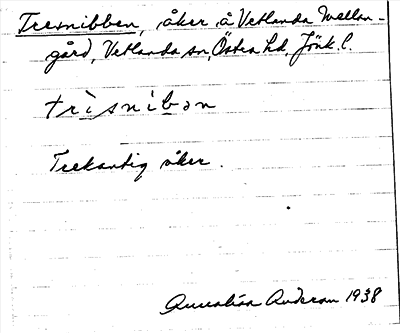 Tresnibben, åker å Vetlanda Mellan-
gård, Vetlanda sn, Östra hd, Jönk. l.
trisnibən
Trekantig åker.
Andersson 1938